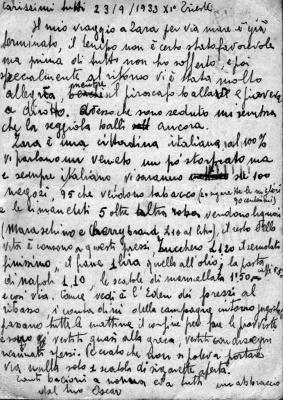 Carissimi tutti 23/9/1933 XI° Trieste
Il mio viaggio a Zara per via mare è già
terminato, il tempo non è certo stato favorevole
ma prima di tutto non ho sofferto, e poi
specialmente al ritorno vi è stata molto
allegria mentre il piroscafo ballava e pioveva
a dirotto. Adesso che sono seduto mi sembra
che la seggiola balli ancora.
Zara è una cittadina italiana al 100%
vi parlano un veneto un pò storpiato ma
è sempre italiano vi saranno 100
negozi, 95 che vendono tabacco
e le rimanenti 5 oltre altra roba vendono liquori
(Maraschino e Cherry brand £10 al litro). Il costo della
vita è consono a questi prezzi zucchero £1.20 il semolato
finissimo, il pane 1 lira quello all'olio, la pasta
di napoli £1.0, le scatole di marmellata 1.50
e così via. Come vedi è l'Eden dei prezzi al
ribasso, i contadini della campagna intorno
passano tutte le mattine il confine per fare le provviste
e sono vestiti quasi alla greca, vestiti con disegni
ricamati spessi. Peccato che non si poteva portare
via nulla solo 1 scatola di sigarette aperta.
Tanti bacioni a nonna e a tutti un abbraccio
dal tuo Oscar